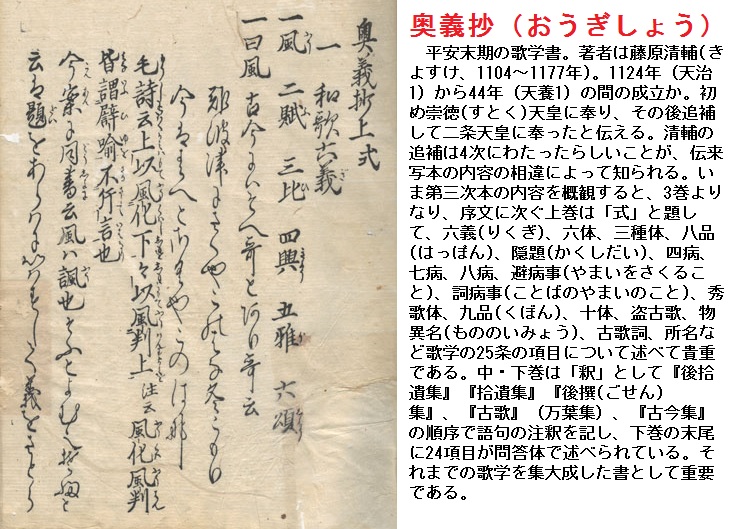 奥義抄上式
一 和歌六義
一風 二賦 三比 四興 五雅 六頌
一曰風 古今に そへ哥とあり哥云
難波津にさくやこの花冬こもり
今ははるへとさくやこのは那
毛詩云上以風化下々以風刺上 注云風化風刺
皆謂譬喩不行言也
今案に同書云風ハ諷也そふとよむ
云は題をあらはにいはすして義をさとら
奥義抄（おうぎしょう）
平安末期の歌学書。著者は藤原清輔(き
よすけ、1104～1177年)。1124年（天治
1）から44年（天養1）の間の成立か。初
め崇徳(すとく)天皇に奉り、その後追補
して二条天皇に奉ったと伝える。清輔の
追補は4次にわたったらしいことが、伝来
写本の内容の相違によって知られる。い
ま第三次本の内容を概観すると、3巻より
なり、序文に次ぐ上巻は「式」と題し
て、六義(りくぎ)、六体、三種体、八品
(はっぽん)、隠題(かくしだい)、四病、
七病、八病、避病事(やまいをさくるこ
と)、詞病事(ことばのやまいのこと)、秀
歌体、九品(くほん)、十体、盗古歌、物
異名(もののいみょう)、古歌詞、所名な
ど歌学の25条の項目について述べて貴重
である。中・下巻は「釈」として『後拾
遺集』『拾遺集』『後撰(ごせん)
集』、『古歌』（万葉集）、『古今集』
の順序で語句の注釈を記し、下巻の末尾
に24項目が問答体で述べられている。そ
れまでの歌学を集大成した書として重要
である。